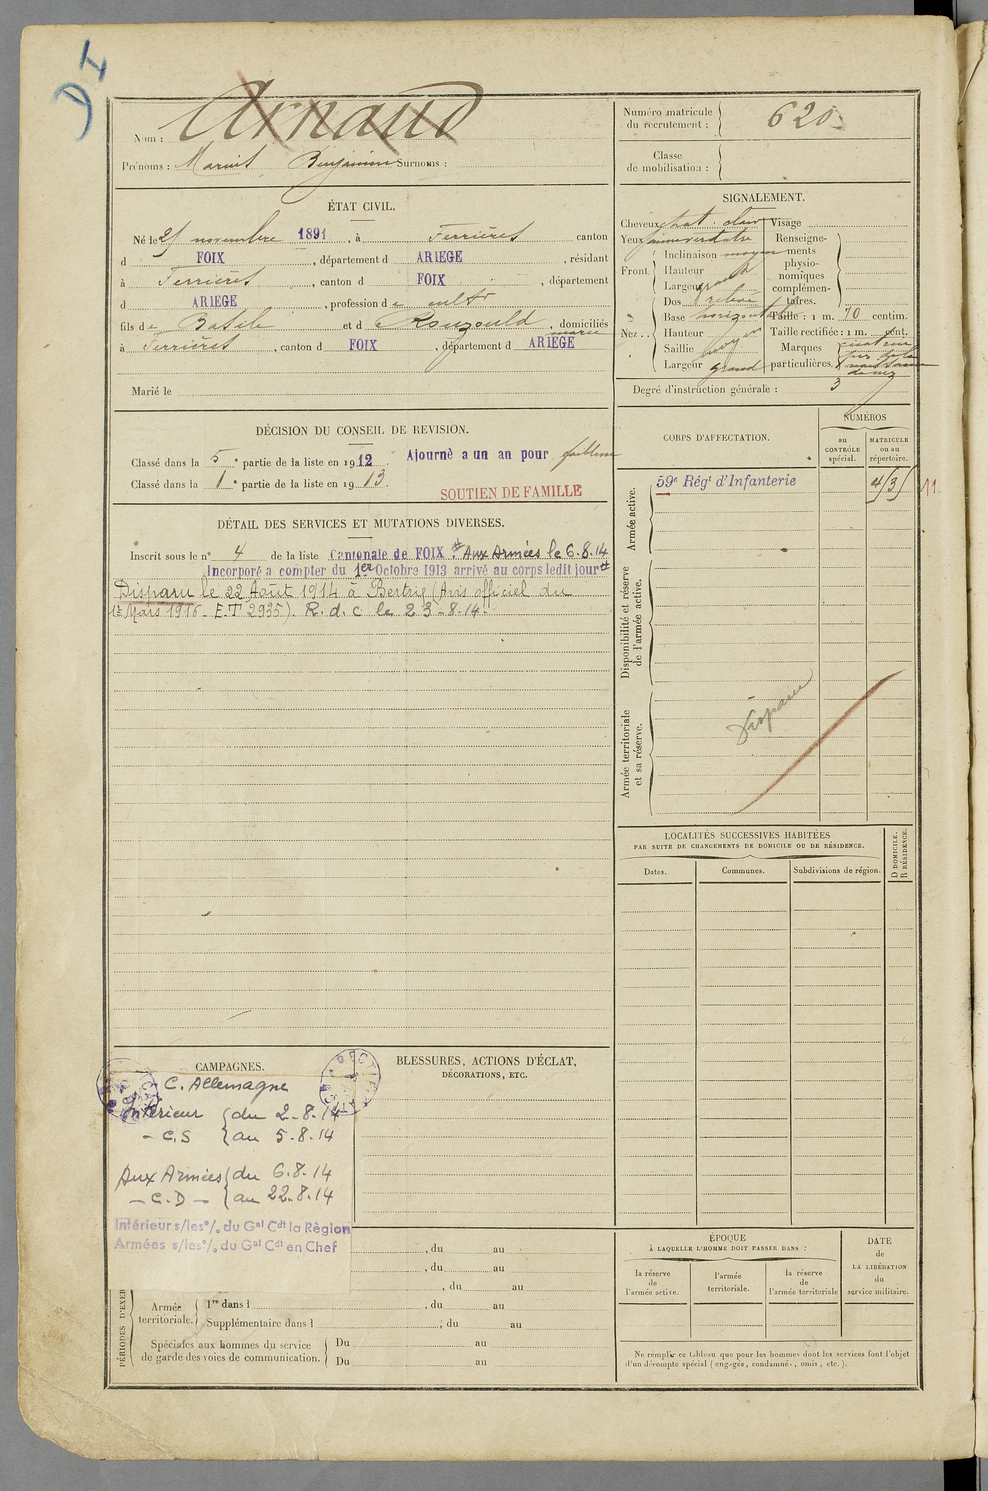 Nom : Arnaud
Prénoms : Benjamin Surnoms :
Numéro matricule
du recrutement : 620
Classe
de mobilisation :
ÉTAT CIVIL.
Né le novembre 1891, à Ferrières canton
d FOIX, département d ARIEGE, résidant
à Ferrières, canton d FOIX, département
d ARIEGE, profession de cultr
fils de et d Rouzould, domiciliés
à Ferrières, canton d FOIX, département d ARIEGE
Marié le
SIGNALEMENT.
Cheveux chat. clair
Yeux
Front. Inclinaison moyen
Hauteur grand
Largeur
Nez.. Dos relevé
Base horizontale
Hauteur
Saillie moyen
Largeur grand
Visage
Renseigne-
ments
physio-
nomiques
complémen-
taires.
Taille : 1 m. 70 centim.
Taille rectifiée : 1 m. cent.
Marques
particulières.
Degré d'instruction générale : 3
DÉCISION DU CONSEIL DE REVISION.
Classé dans la 5e partie de la liste en 1912. Ajourné a un an pour faiblesse
Classé dans la 1e partie de la liste en 1913.
SOUTIEN DE FAMILLE
DÉTAIL DES SERVICES ET MUTATIONS DIVERSES.
Inscrit sous le n° 4 de la liste Cantonale de FOIX # Aux Armées le 6.8.14
Incorporé a compter du 1er Octobre 1913 arrivé au corps ledit jour #
Disparu le 22 Août 1914 à Bertrix (Avis officiel du
Mars 1916. E.T 2935). R.d.c le 23-8-14-
CORPS D'AFFECTATION.
NUMÉROS
au
CONTRÔLE
spécial.
MATRICULE
ou au
répertoire.
Armée active.
59e Régt d'Infanterie
11.
Disponibilité et réserve
de l'armée active.
Armée territoriale
et sa réserve.
Disparu
LOCALITÉS SUCCESSIVES HABITÉES
PAR SUITE DE CHANGEMENTS DE DOMICILE OU DE RÉSIDENCE.
Dates.
Communes.
Subdivisions de région.
D DOMICILE.
R RÉSIDENCE.
CAMPAGNES.
C. Allemagne
Intérieur { du 2-8-14
- C.S { au 5-8-14
Aux Armées { du 6.8.14
- C.D - { au 22-8-14
Intérieur s/les°/° du Gal Cdt la Région
Armées s/les°/° du Gal Cdt en Chef
BLESSURES, ACTIONS D'ÉCLAT,
DÉCORATIONS, ETC.
, du au
, du au
, du au
PÉRIODES D'EXER
Armée
territoriale.
1re dans l , du au
Supplémentaire dans l , du au
Spéciales aux hommes du service
de garde des voies de communication.
Du au
Du au
ÉPOQUE
À LAQUELLE L'HOMME DOIT PASSER DANS :
la réserve
de
l'armée active.
l'armée
territoriale.
la réserve
de
l'armée territoriale
DATE
de
LA LIBÉRATION
du
service militaire.
Ne remplir ce tableau que pour les hommes dont les services font l'objet
d'un décompte spécial (engagés, condamnés, omis, etc.).